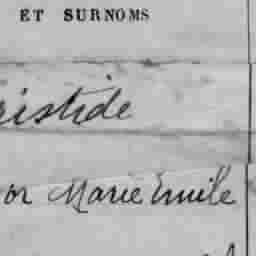 ET SURNOMS
ristide
or Marie Emile